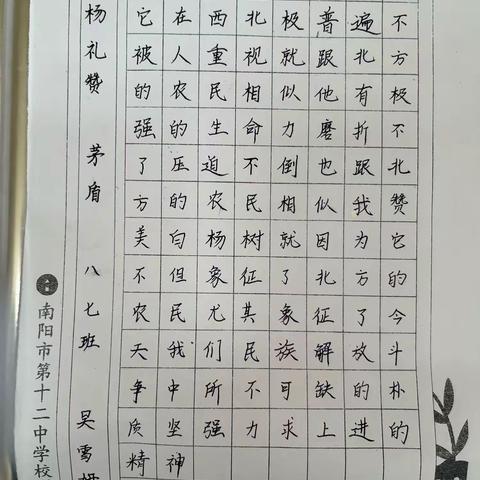 杨礼赞 茅盾 八七班 吴雪
南阳市第十二中学校
它在西北极普遍不
被人重视就跟北方
的农民相似他有极
强的生命力磨折不
了压迫不倒也跟北
方的农民相似我赞
美白杨树就因为它
不但象征了北方的
农民尤其象征了今
天我们民族解放斗
争中所不可缺的朴
质坚强力求上进的
精神